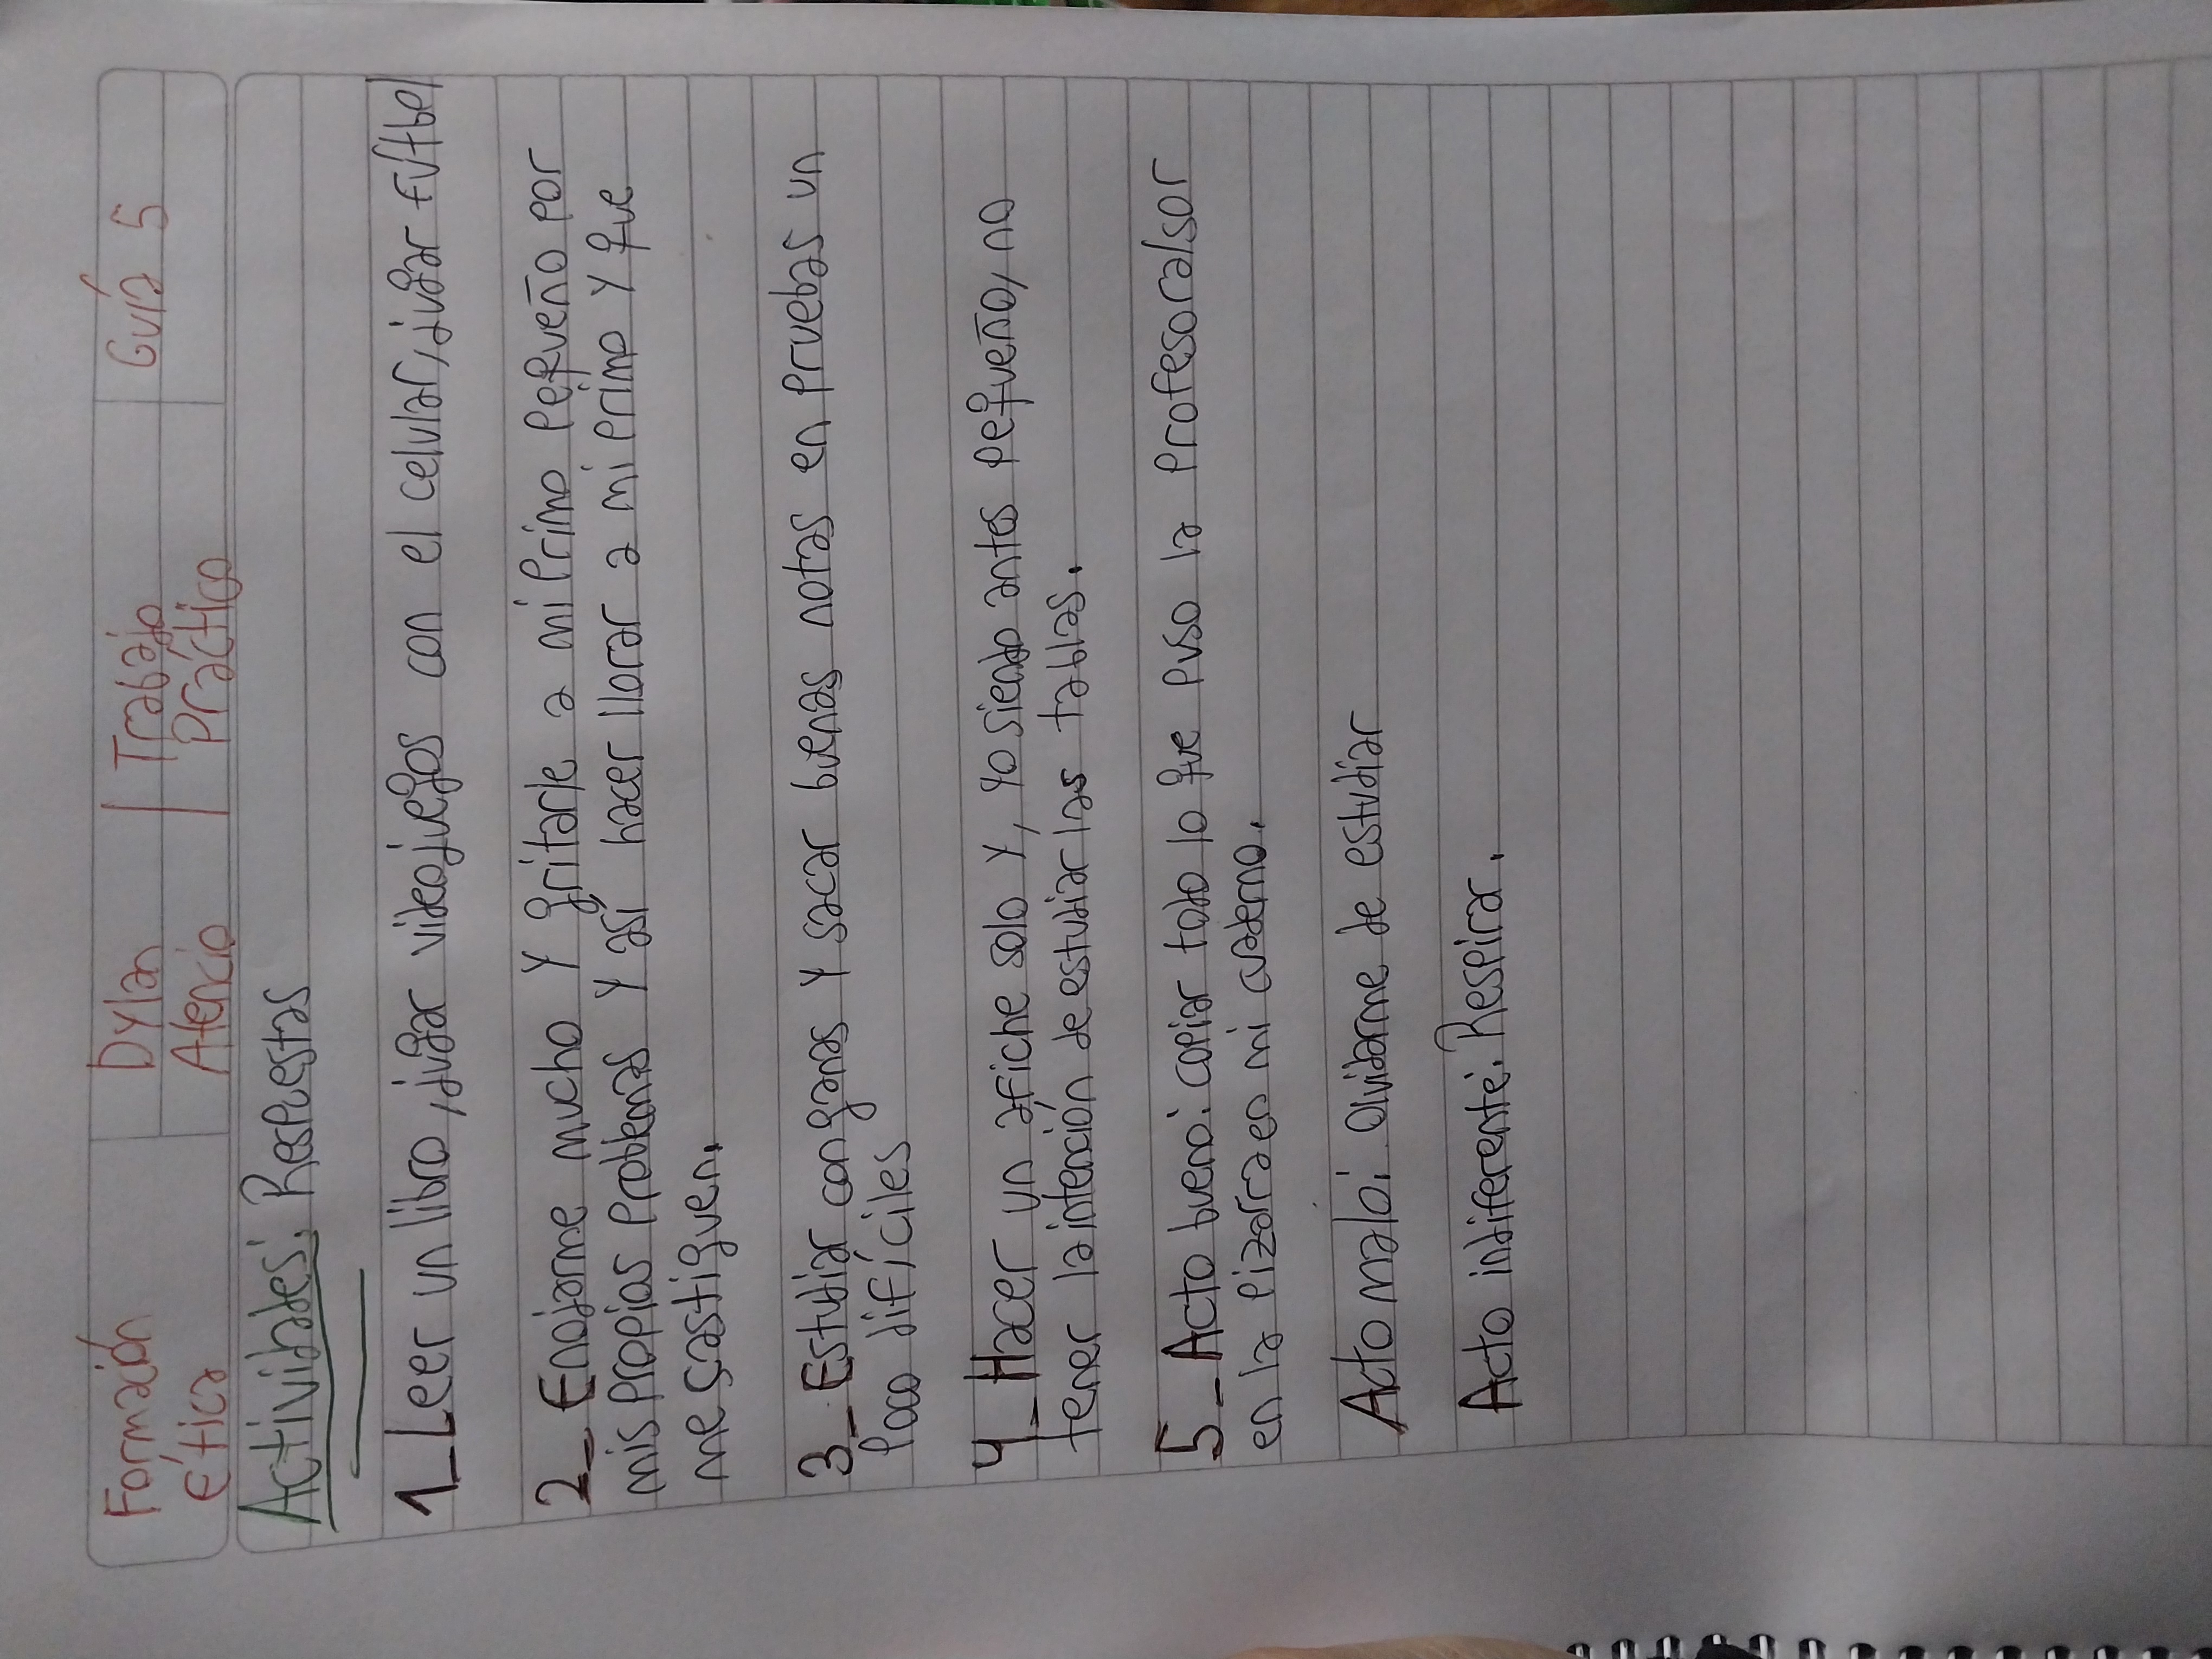 Formación ética
Dylan Atencio | Trabajo Práctico
Guía 5
Actividades: Respuestas
1_Leer un libro, jugar videojuegos con el celular, jugar fútbol
2_ Enojarme mucho y gritarle a mi primo pequeño por
mis propios problemas y así hacer llorar a mi primo y que
me castiguen.
3_Estudiar con ganas y sacar buenas notas en pruebas un
poco difíciles
4_Hacer un afiche solo y, yo siendo antes pequeño, no
tener la intención de estudiar las tablas.
5_Acto bueno: copiar todo lo que puso la profesora/sor
en la pizarra en mi cuaderno.
Acto malo: Olvidarme de estudiar
Acto indiferente: Respirar.